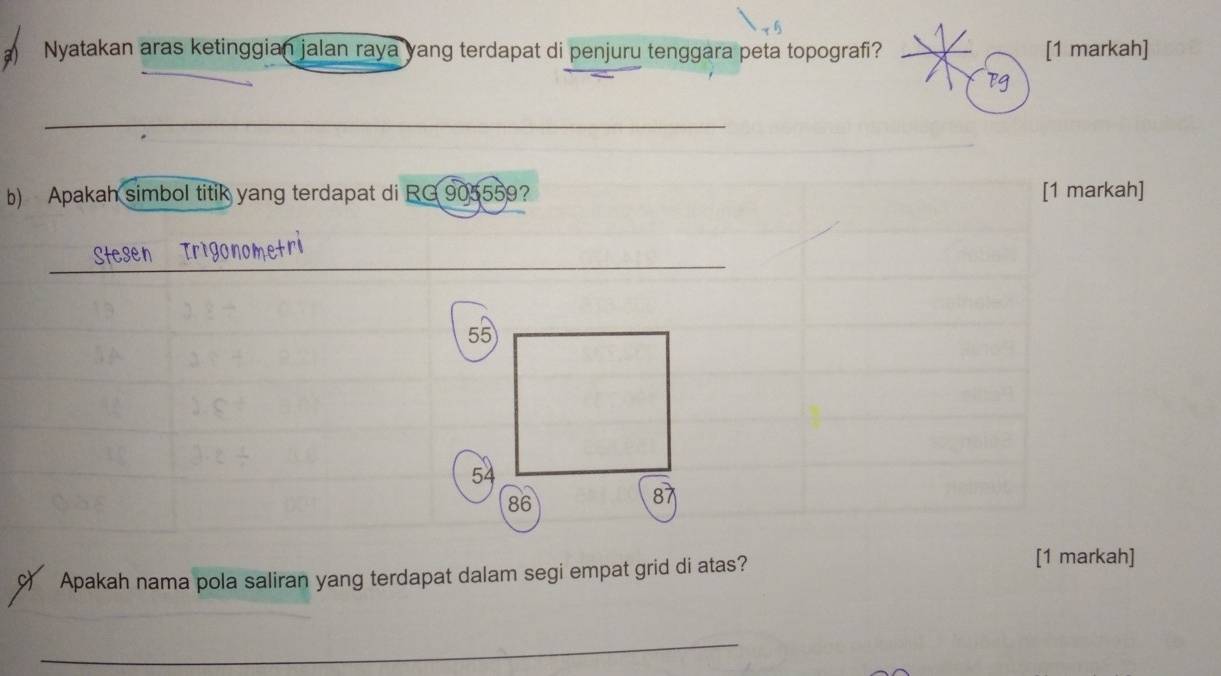 a) Nyatakan aras ketinggian jalan raya yang terdapat di penjuru tenggara peta topografi? [1 markah]
Tg
b) Apakah simbol titik yang terdapat di RG 905559? [1 markah]
Stesen Trigonometri
55
54
86 87
c) Apakah nama pola saliran yang terdapat dalam segi empat grid di atas? [1 markah]